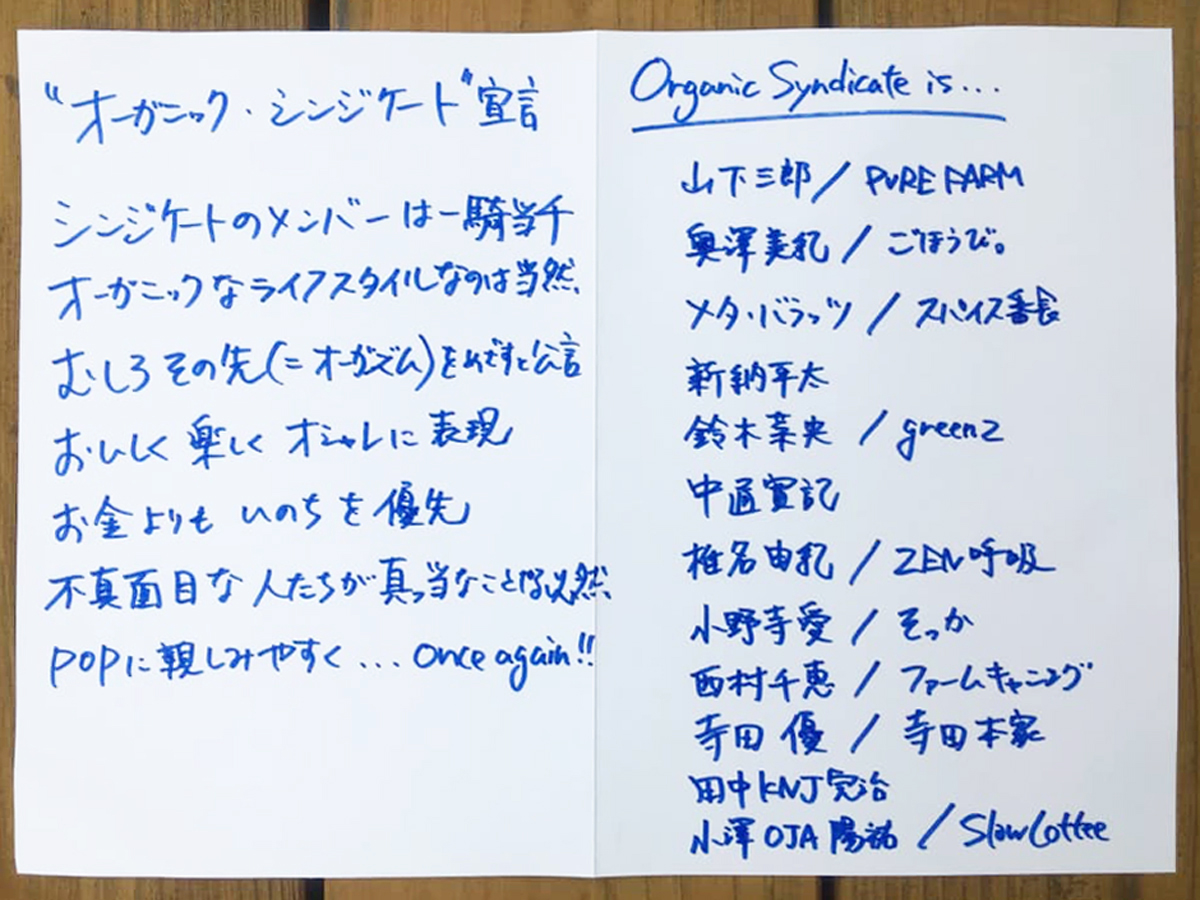 “オーガニック・シンジケート”宣言
シンジケートのメンバーは一騎当千
オーガニックなライフスタイルなのは当然、
むしろその先(=オーガズム)をめざすと公言
おいしく 楽しく オシャレに表現
お金よりも いのちを優先
不真面目な人たちが真っ当なことやる必然、
POPに親しみやすく...Once again!!
Organic Syndicate is...
山下三郎/PURE FARM
奥澤美乳/ごほうび。
メタ・バラッツ/スパイス番長
新納平太
鈴木菜央/greenz
中過實記
椎名由乳/ZEN呼吸
小野寺愛/そっか
西村千恵/ファームキャニング
寺田 優/寺田本家
田中KNJ憲治
小澤OJA陽祐/Slow Coffee